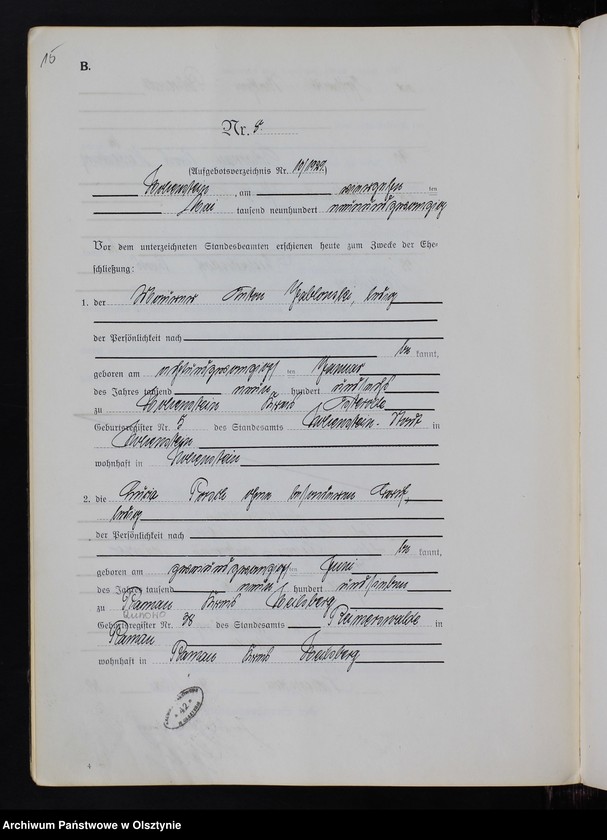 15
B.
Nr. 8
(Aufgebotsverzeichnis Nr. 10/1929.)
Hohenstein, am vierzehnten
Mai tausend neunhundert neunundzwanzig
Vor dem unterzeichneten Standesbeamten erschienen heute zum Zwecke der Ehe-
schließung:
1. der Maurer Anton Jablonski, ledig
der Persönlichkeit nach
be kannt,
geboren am achtundzwanzigsten Januar
des Jahres tausend neun hundert und sechs
zu Hohenstein Kreis Osterode
Geburtsregister Nr. des Standesamts Hohenstein-Stadt in
Hohenstein
wohnhaft in Hohenstein
2. die Lucia ohne besonderen Beruf,
ledig
der Persönlichkeit nach
be kannt,
geboren am zweiundzwanzigsten Juni
des Jahres tausend neun hundert und sieben
zu Raunau Kreis Heilsberg
Geburtsregister Nr. 38 des Standesamts Reimerswalde in
Raunau
wohnhaft in Raunau Kreis Heilsberg
42
Archiwum Państwowe w Olsztynie